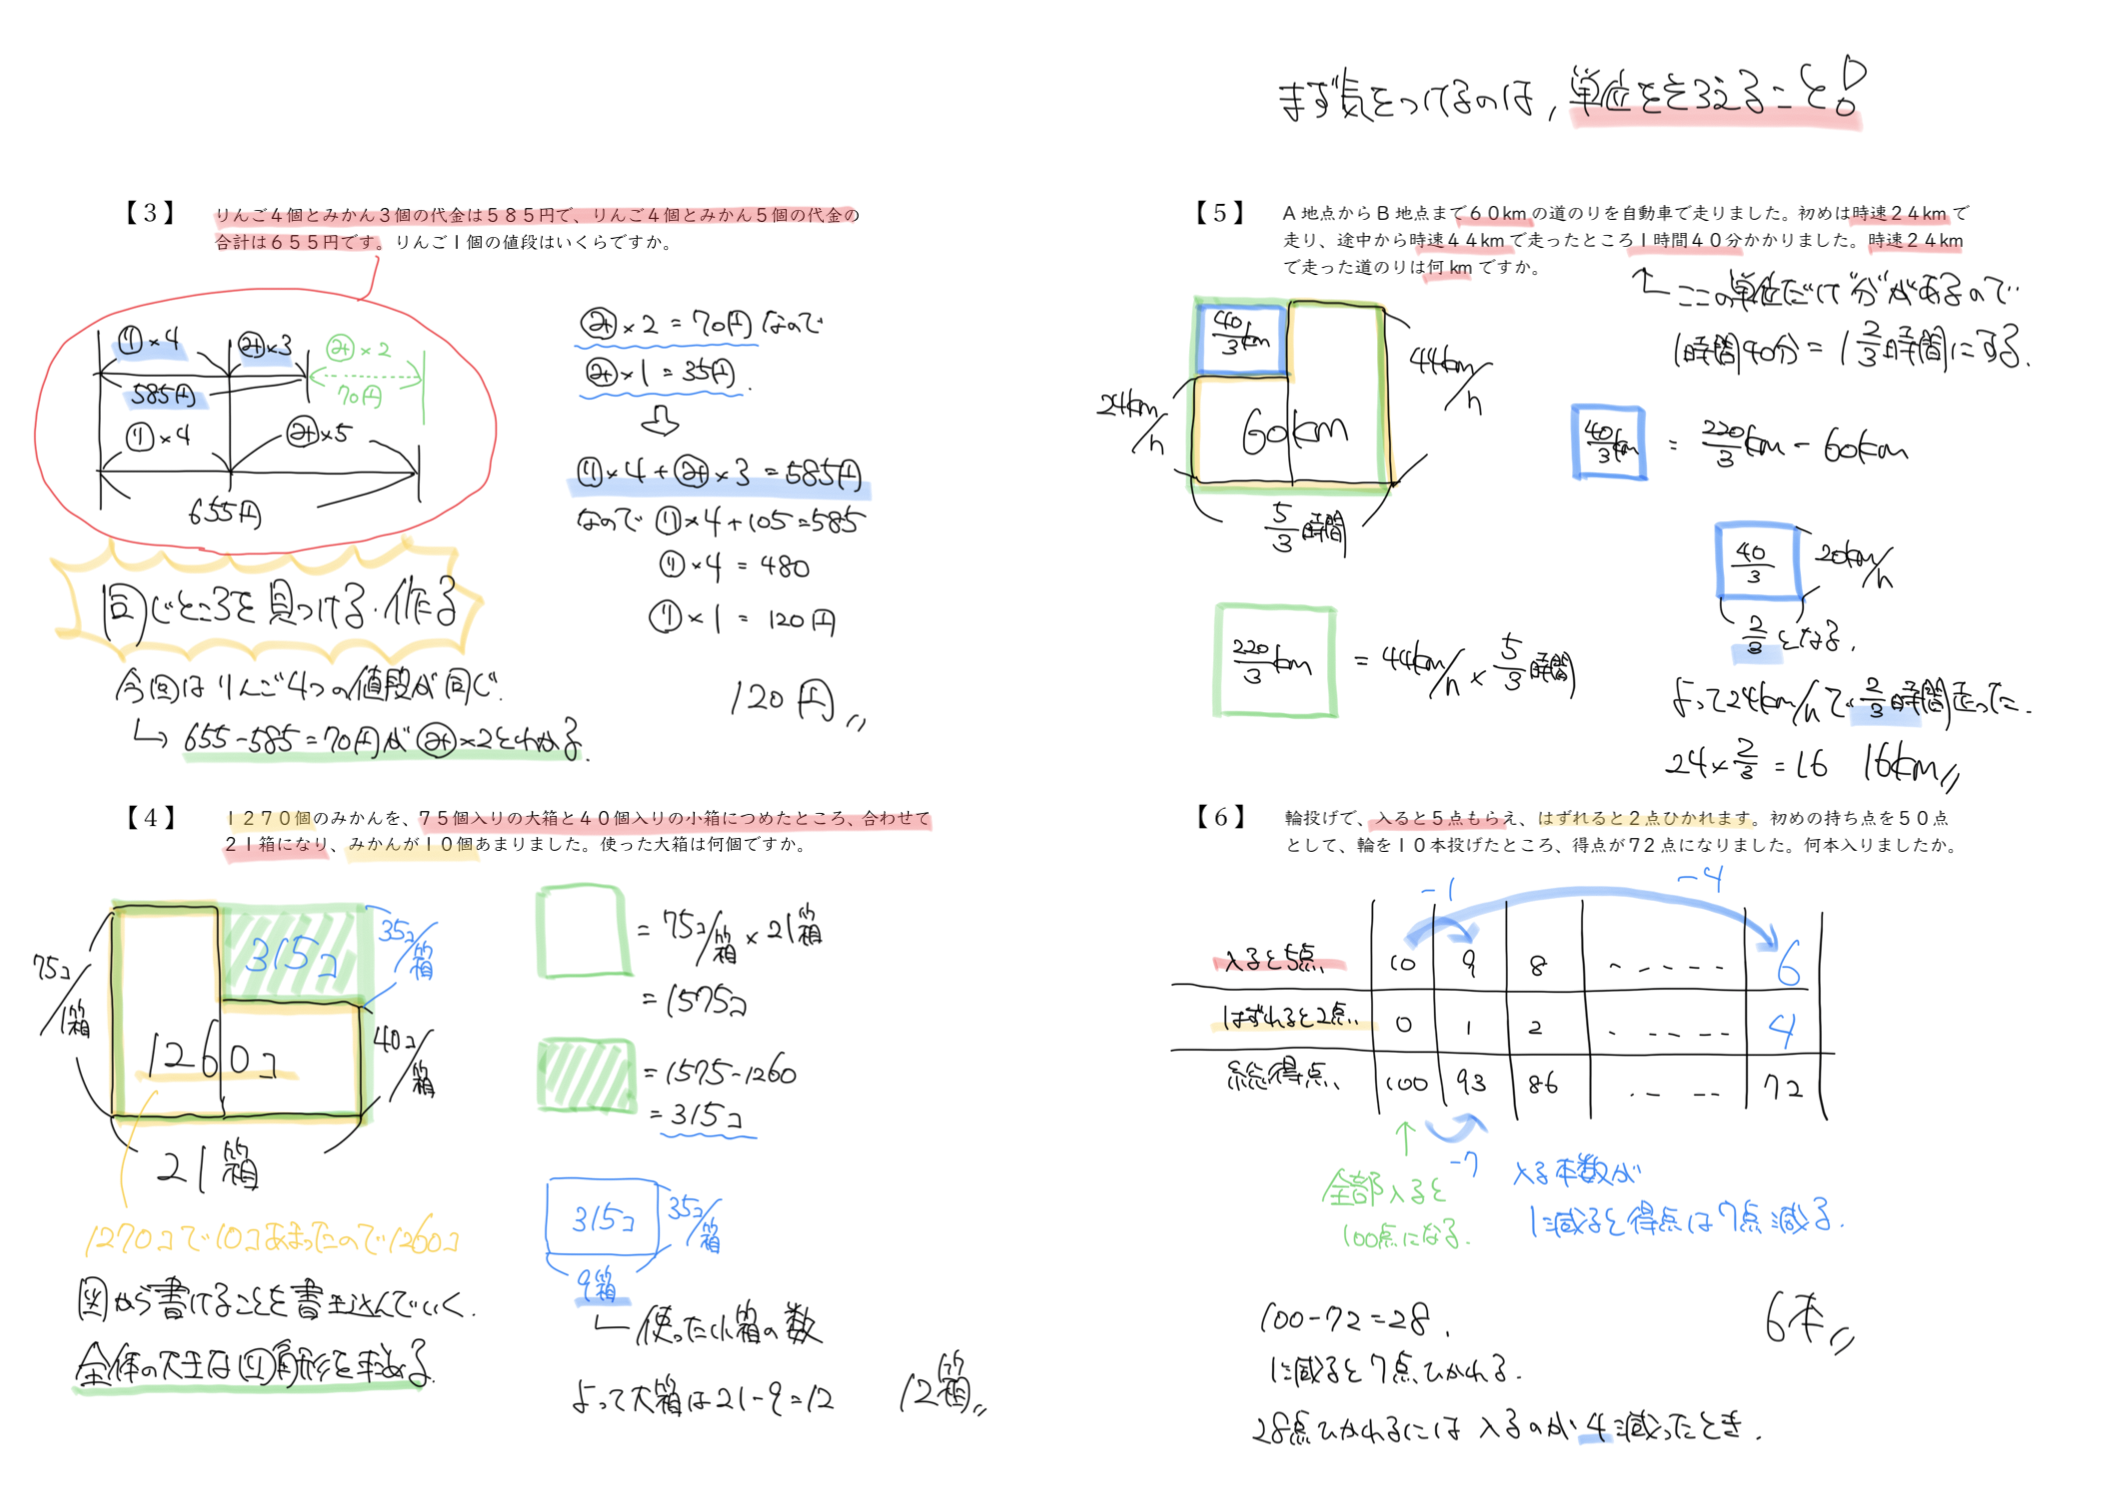 【３】
りんご４個とみかん３個の代金は５８５円で、りんご４個とみかん５個の代金の
合計は６５５円です。りんご１個の値段はいくらですか。
り×4
み×3
み×2
585円
70円
り×4
み×5
655円
同じところを見つける・作る
今回はりんご4つの値段が同じ.
↳ 655-585=70円がみ×2とわかる.
み×2=70円なので
み×1=35円.
⇩
り×4+み×3=585円
なので り×4+105=585
り×4=480
り×1=120円
120円〃
【４】
１２７０個のみかんを、７５個入りの大箱と４０個入りの小箱につめたところ、合わせて
２１箱になり、みかんが１０個あまりました。使った大箱は何個ですか。
75コ/1箱
315コ
35コ/箱
1260コ
40コ/箱
21箱
1270コで10コあまったので1260コ
図から書けることを書き込んでいく.
全体の大きな四角形を求める.
=75コ/箱×21箱
=1575コ
=1575-1260
=315コ
315コ
35コ/箱
9箱
使った小箱の数
よって大箱は21-9=12
12箱〃
まず気をつけるのは,単位をそろえること!
【５】
A 地点から B 地点まで６０km の道のりを自動車で走りました。初めは時速２４km で
走り、途中から時速４４km で走ったところ１時間４０分かかりました。時速２４km
で走った道のりは何 km ですか。
↑ここの単位だけ"分"があるので
1時間40分=1 2/3時間にする.
40/3km
44km/h
24km/h
60km
5/3時間
40/3km = 220/3km - 60km
220/3km = 44km/h × 5/3時間
40/3
20km/h
2/3となる.
よって24km/hで2/3時間走った.
24×2/3=16 16km〃
【６】
輪投げで、入ると５点もらえ、はずれると２点ひかれます。初めの持ち点を５０点
として、輪を１０本投げたところ、得点が７２点になりました。何本入りましたか。
-1
-4
入ると5点 10 9 8 ----- 6
はずれると2点 0 1 2 ----- 4
総得点 100 93 86 ---- 72
-7
全部入ると
100点になる.
入る本数が
1減ると得点は7点減る.
100-72=28.
1減ると7点ひかれる.
28点ひかれるには入るのが4減ったとき.
6本〃